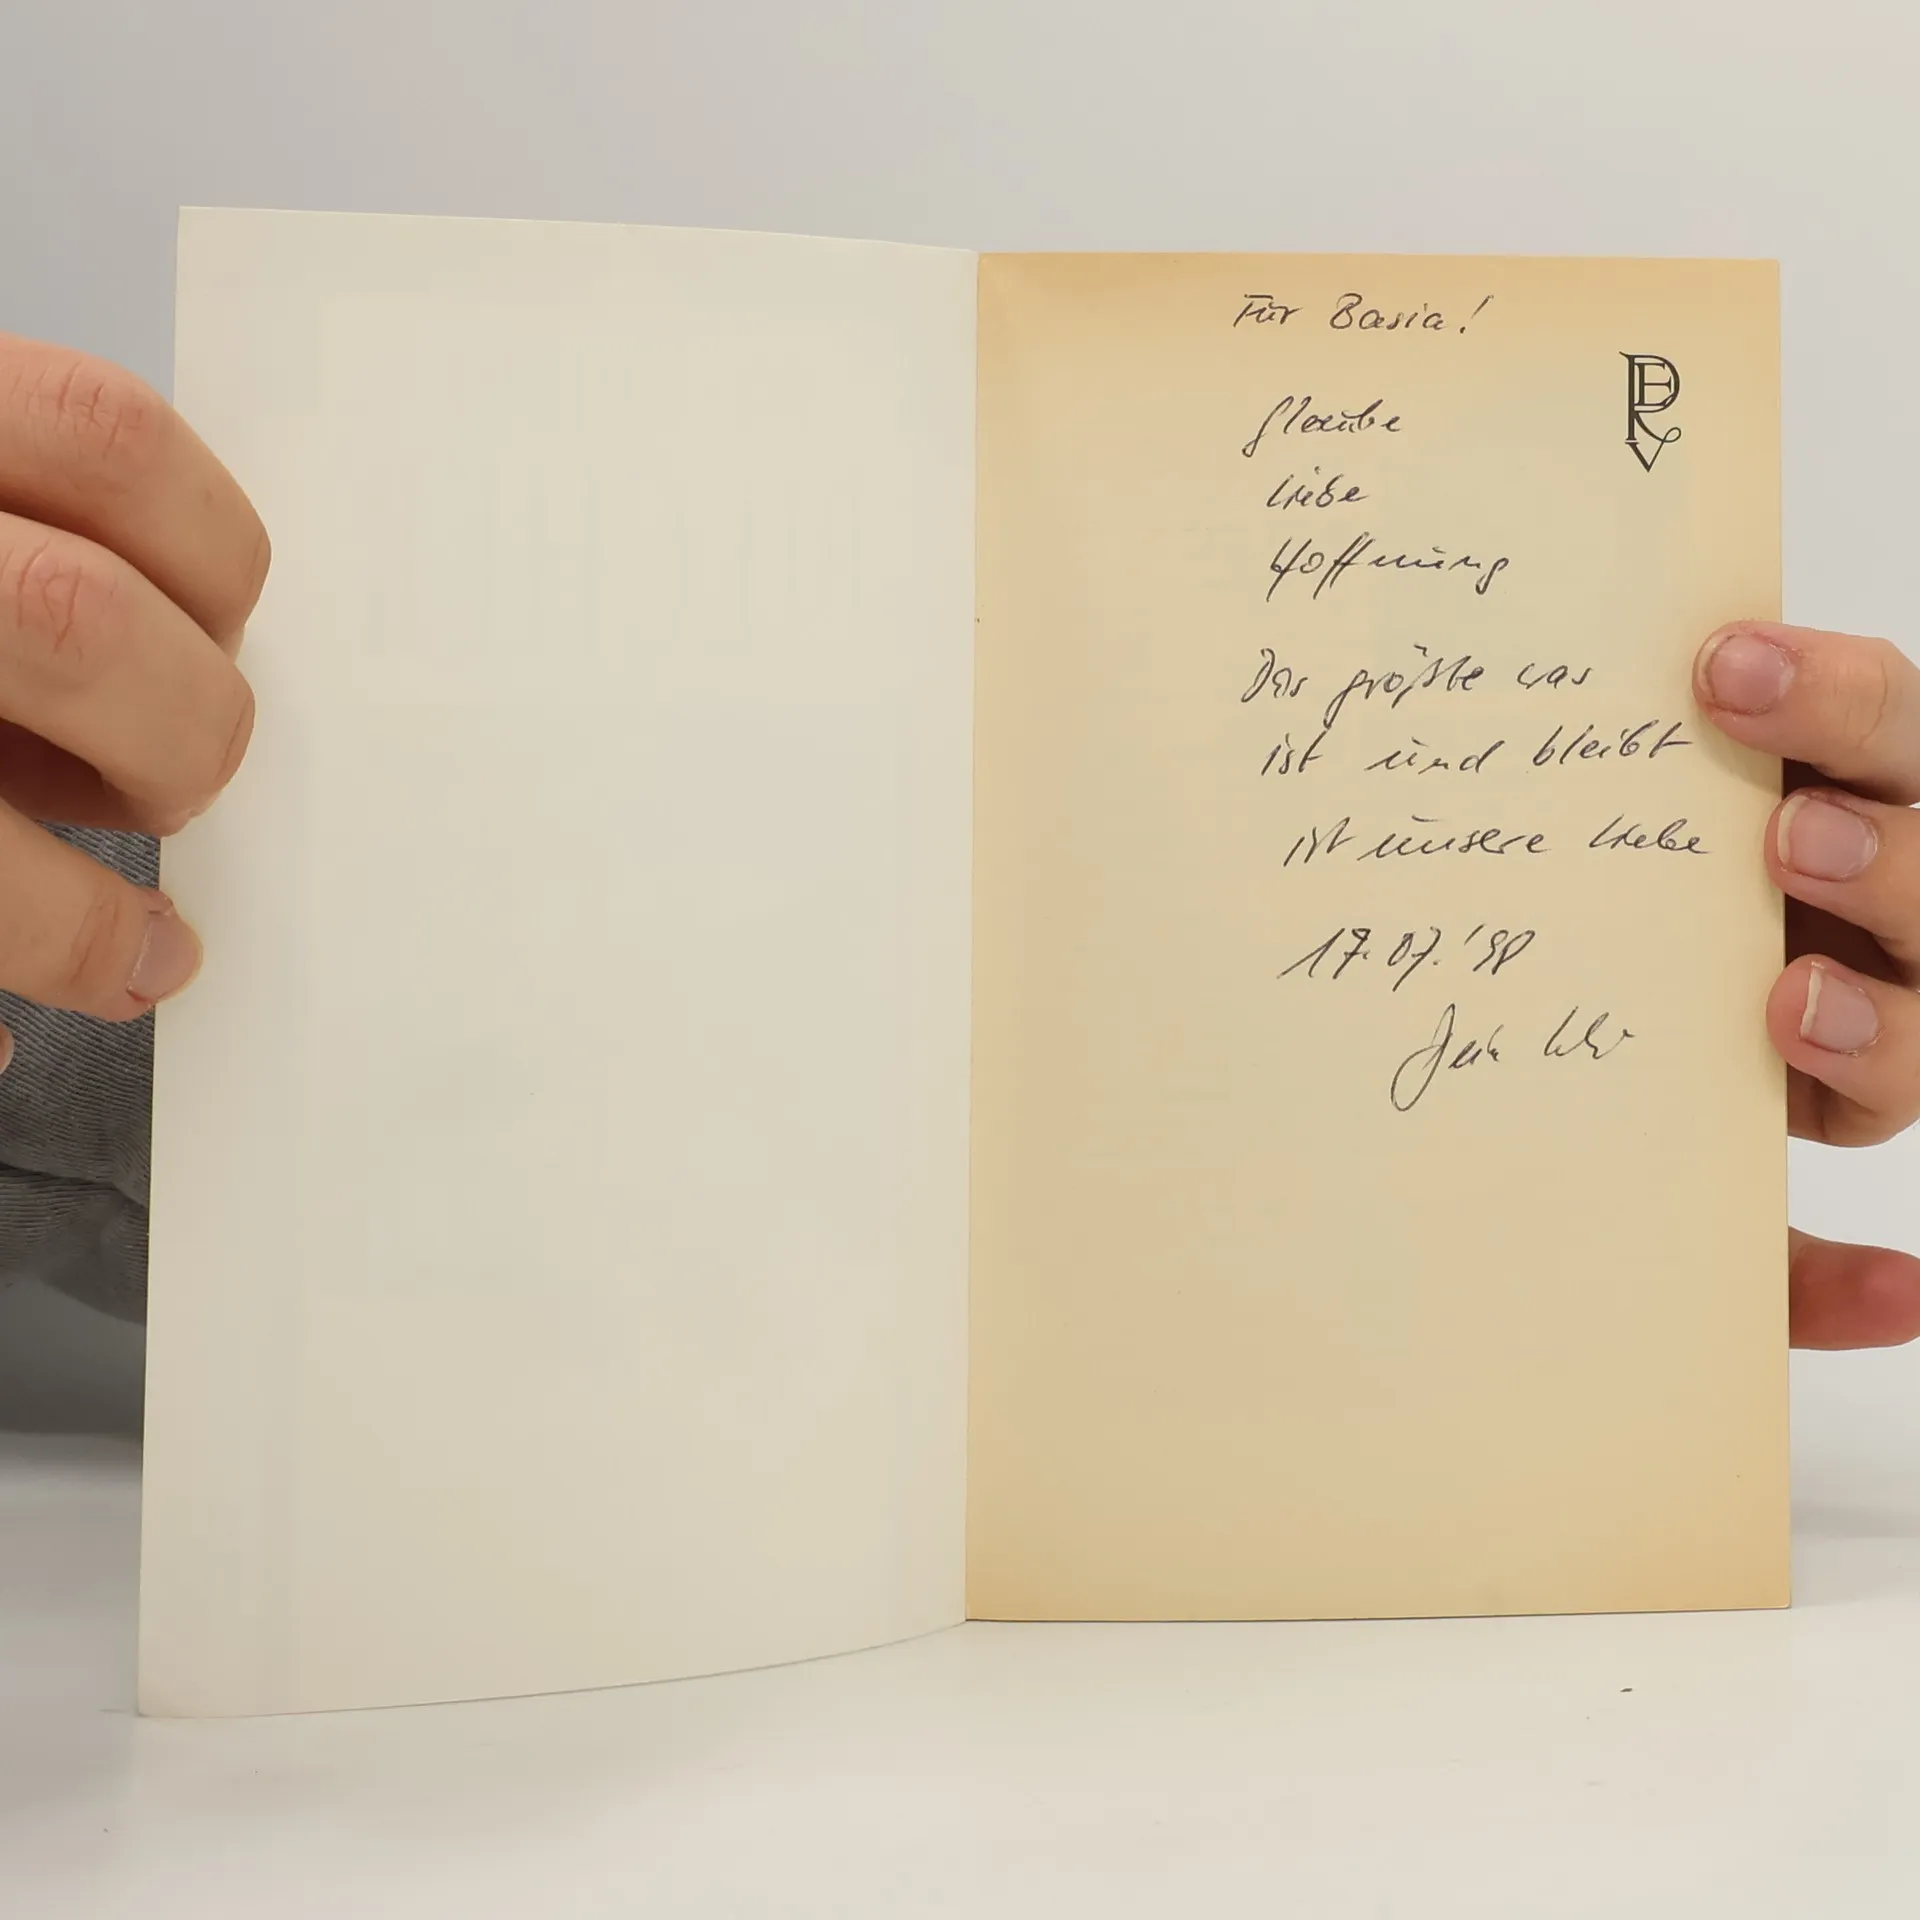 Für Basia!
Glaube
Liebe
Hoffnung
Das größte was
ist und bleibt
ist unsere Liebe
17.07.'98
Dein